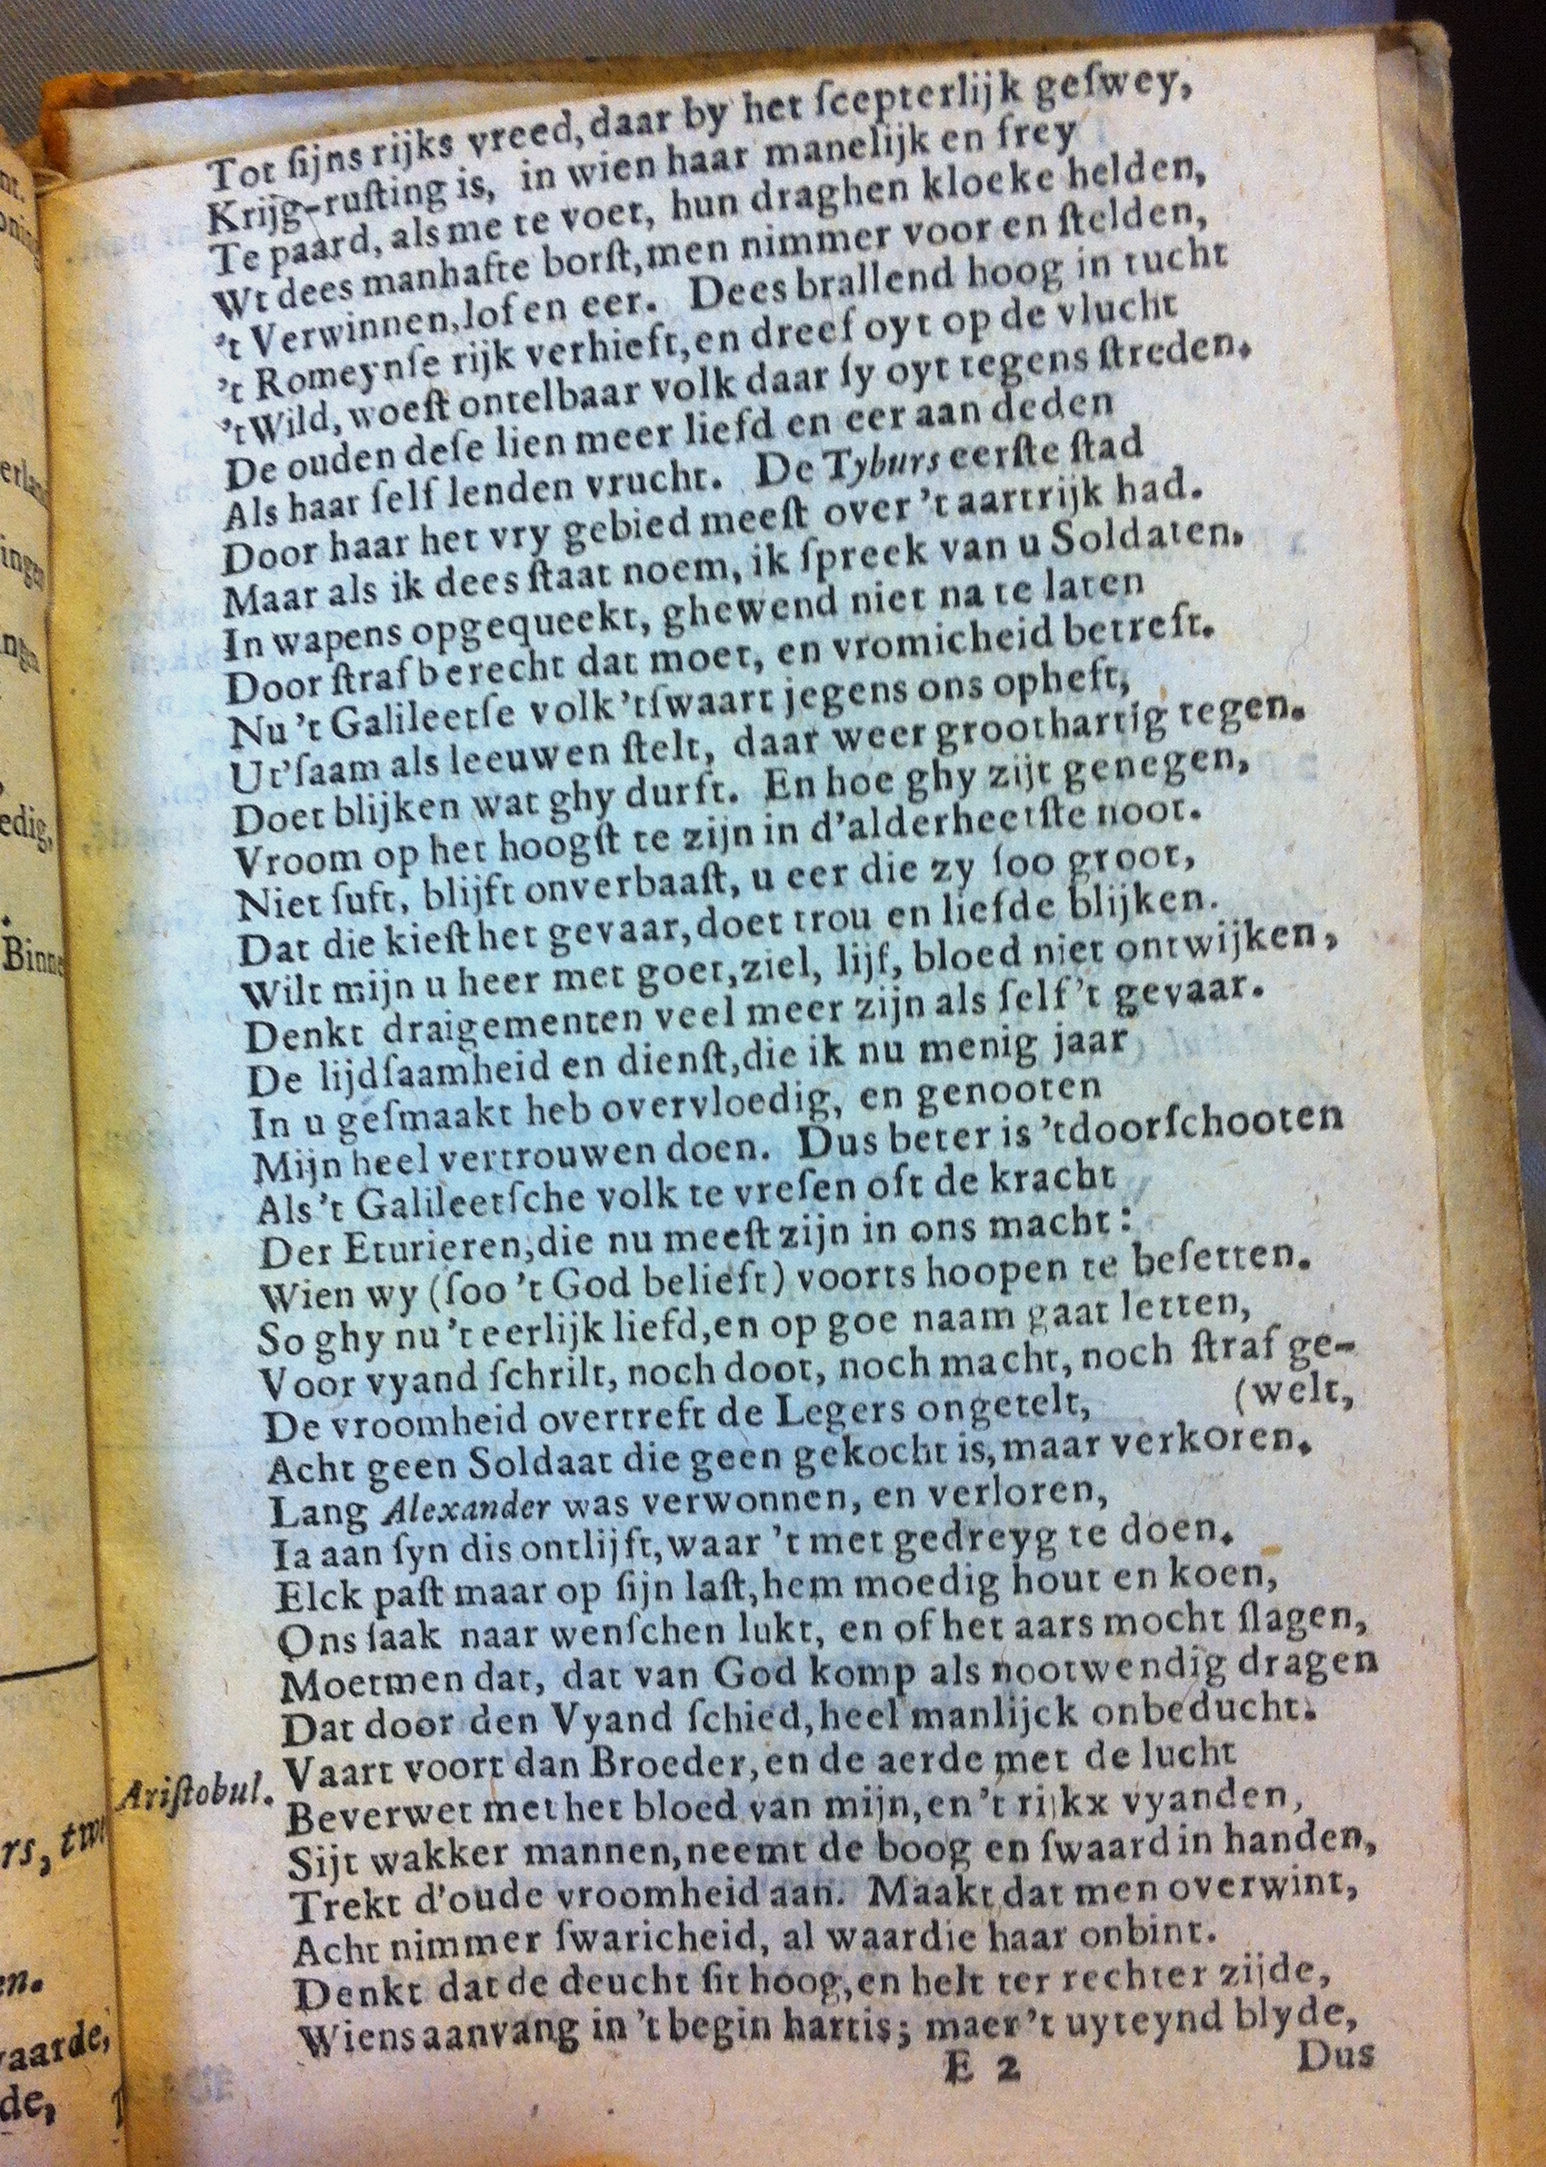 Tot ſijns rijks vreed, daar by het ſcepterlijk geſwey,
Krijg-ruſting is, in wien haar manelijk en frey
Te paard, als me te voet, hun draghen kloeke helden,
Wt dees manhafte borſt, men nimmer voor en ſtelden,
't Verwinnen, lof en eer. Dees brallend hoog in tucht
't Romeynſe rijk verhieft, en dreef oyt op de vlucht
't Wild, woeſt ontelbaar volk daar ſy oyt tegens ſtreden.
De ouden deſe lien meer liefd en eer aan deden
Als haar ſelf lenden vrucht. De Tyburs eerſte ſtad
Door haar het vry gebied meeſt over 't aartrijk had.
Maar als ik dees ſtaat noem, ik ſpreek van u Soldaten.
In wapens opgequeekt, ghewend niet na te laten
Door ſtraf berecht dat moet, en vromicheid betreft.
Nu 't Galileetſe volk 'tſwaart jegens ons opheft,
Ut'ſaam als leeuwen ſtelt, daar weer groothartig tegen.
Doet blijken wat ghy durft. En hoe ghy zijt genegen,
Vroom op het hoogſt te zijn in d'alderheetſte noot.
Niet ſuft, blijft onverbaaſt, u eer die zy ſoo groot,
Dat die kieſt het gevaar, doet trou en liefde blijken.
Wilt mijn u heer met goet, ziel, lijf, bloed niet ontwijken,
Denkt draigementen veel meer zijn als ſelf 't gevaar.
De lijdſaamheid en dienſt, die ik nu menig jaar
In u geſmaakt heb overvloedig, en genooten
Mijn heel vertrouwen doen. Dus beter is 't doorſchooten
Als 't Galileetſche volk te vreſen oft de kracht
Der Eturieren, die nu meeſt zijn in ons macht:
Wien wy (ſoo 't God belieft) voorts hoopen te beſetten.
So ghy nu 't eerlijk liefd, en op goe naam gaat letten,
Voor vyand ſchrilt, noch doot, noch macht, noch ſtraf ge-
De vroomheid overtreft de Legers ongetelt, (welt,
Acht geen Soldaat die geen gekocht is, maar verkoren.
Lang Alexander was verwonnen, en verloren,
Ia aan ſyn dis ontlijft, waar 't met gedreyg te doen.
Elck paſt maar op ſijn laſt, hem moedig hout en koen,
Ons ſaak naar wenſchen lukt, en of het aars mocht ſlagen,
Moetmen dat, dat van God komp als nootwendig dragen
Dat door den Vyand ſchied, heel manlijck onbeducht.
Ariſtobul. Vaart voort dan Broeder, en de aerde met de lucht
Beverwet met het bloed van mijn, en 't rijkx vyanden,
Sijt wakker mannen, neemt de boog en ſwaard in handen,
Trekt d'oude vroomheid aan. Maakt dat men overwint,
Acht nimmer ſwaricheid, al waardie haar onbint.
Denkt dat de deucht ſit hoog, en helt ter rechter zijde,
Wiens aanvang in 't begin hart is; maer 't uyteynd blyde,
E 2 Dus